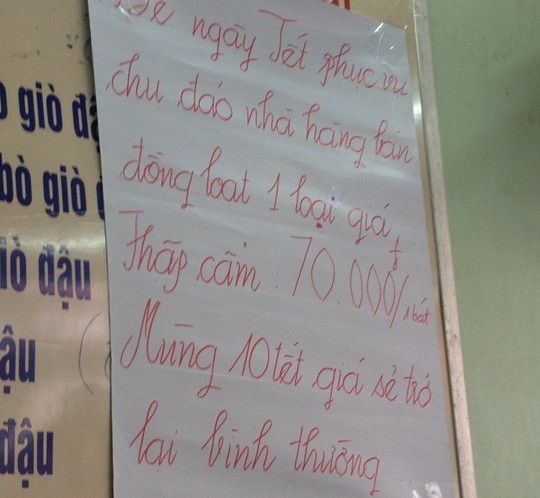 Để ngày Tết phục vụ
chu đáo nhà hàng bán
đồng loạt 1 loại giá
Thập cẩm : 70.000đ/1 bát
Mùng 10 tết giá sẽ trở
lại bình thường
giò đậ
bò giò
iò đậu
ậu
đậu